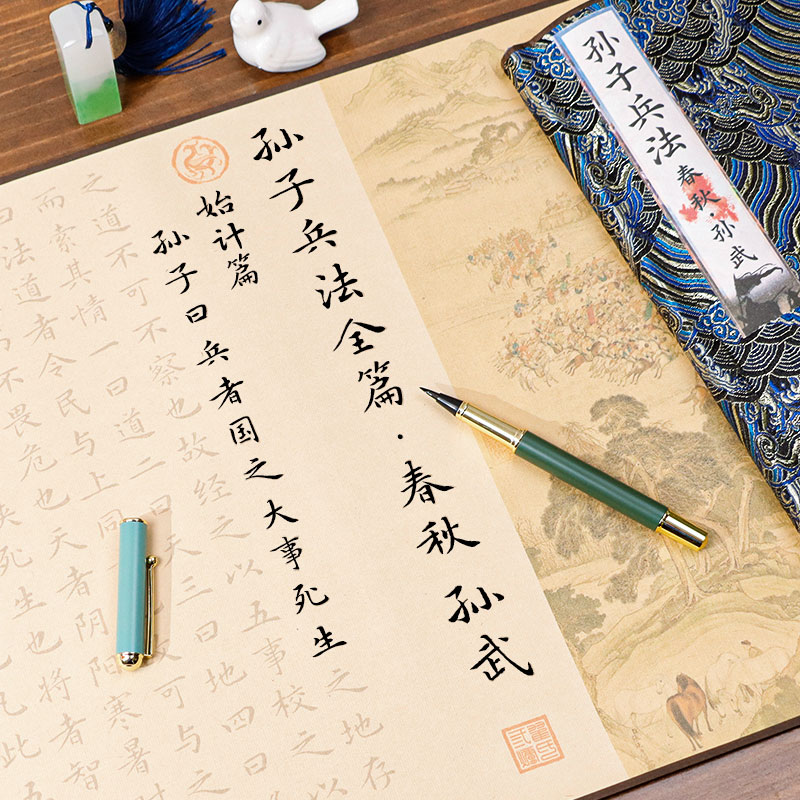 孙子兵法 春秋·孙武
孙子兵法全篇·春秋 孙武
始计篇
孙子曰兵者国之大事死生之地存
之道不可不察也故经之以五事校之
而索其情一曰道二曰天三曰地四曰
曰法道者令民与上同
可与之
不畏危也天者阴阳寒暑时
死生也将者智
凡此五